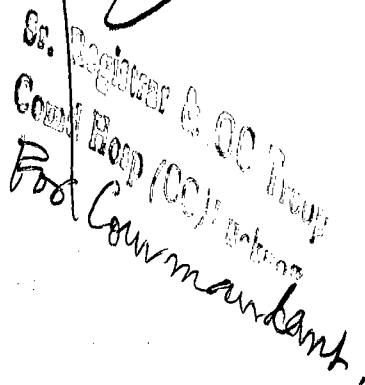 Sr. Registrar & OC Troup
Comd Hosp (CC)
For Commandant.